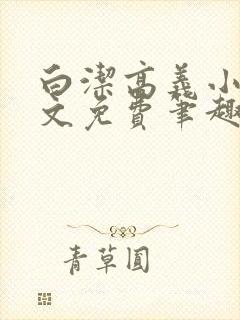 白潔高義小
文免費筆趣
青草圓